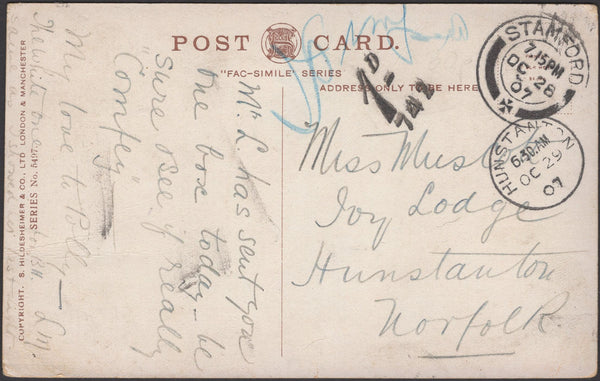 POST CARD.
"FAC-SIMILE SERIES"
ADDRESS ONLY TO BE HERE
STAMFORD
7.15PM
OC 28
07
HUNSTANTON
6.30AM
OC 29
07
1D.
742
Miss
Ivy Lodge
Hunstanton
Norfolk.
Mr L. has sent you
one box today - be
sure & see if really
"Comfey"
My love to Polly -
The white one
L.M.
COPYRIGHT. S. HILDESHEIMER & CO., LTD LONDON & MANCHESTER
SERIES No. 5497